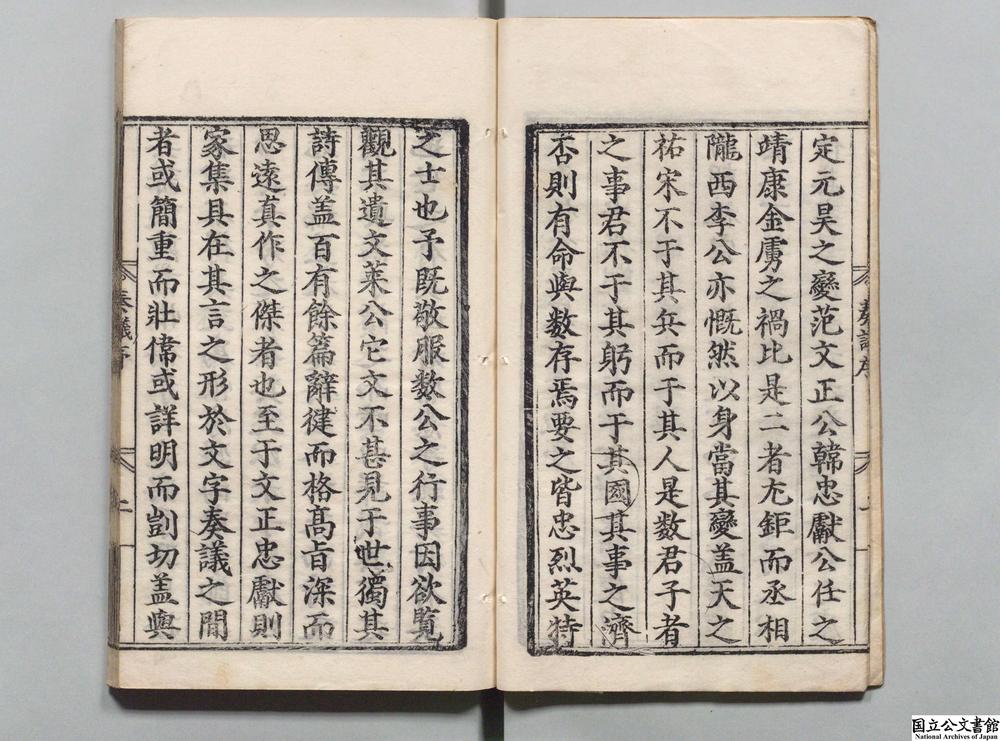 定元昊之變范文正公韓忠獻公任之
靖康金虜之禍比是二者尢鉅而丞相
隴西李公亦慨然以身當其變盖天之
祐宋不于其兵而于其人是数君子者
之事君不于其躬而于其國其事之濟
否則有命與数存焉要之皆忠烈英特
之士也予既敬服数公之行事因欲覧
觀其遺文萊公它文不甚見于世獨其
詩傳盖百有餘篇辭健而格髙旨深而
思遠真作之傑者也至于文正忠獻則
家集具在其言之形於文字奏議之間
者或簡重而壮偉或詳明而剴切盖與
奏議序
二
国立公文書館
National Archives of Japan